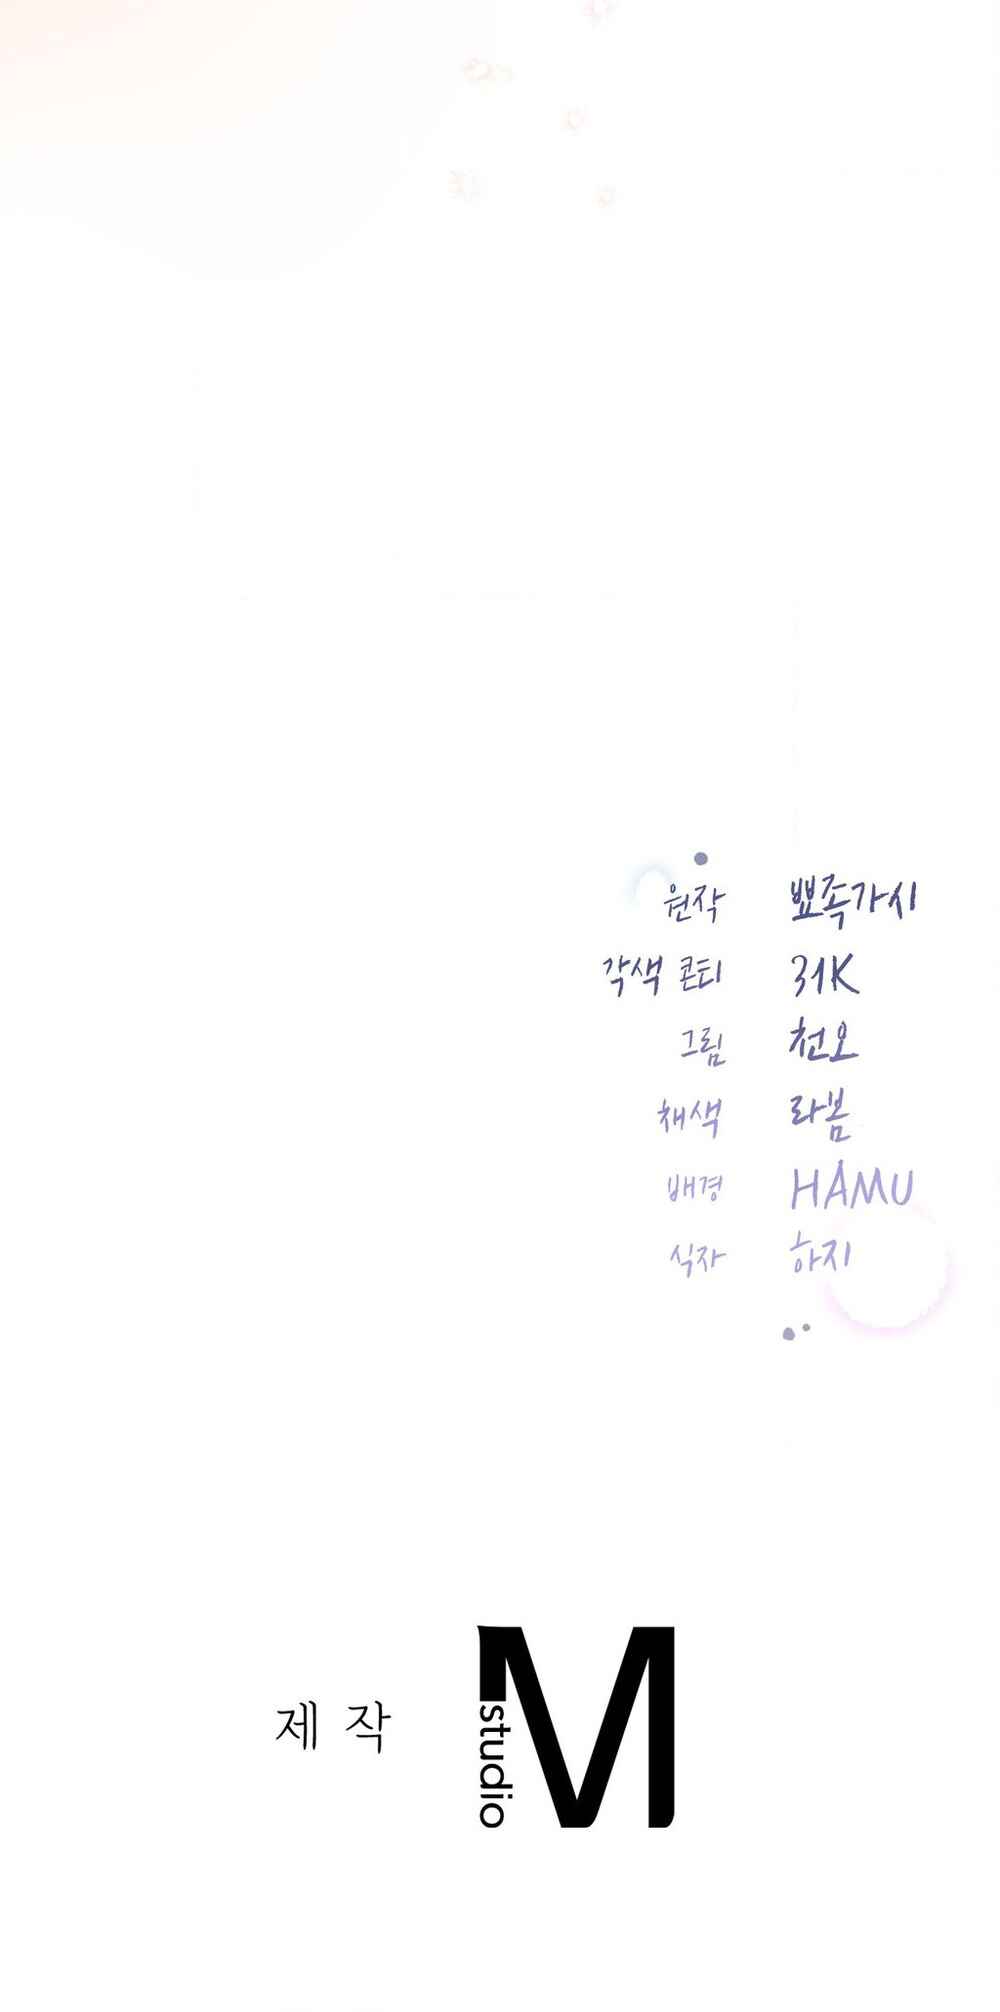 원작 뾰족가시
각색 콘티 31K
그림 천오
채색 라봄
배경 HAMU
식자 하지
제작 M studio